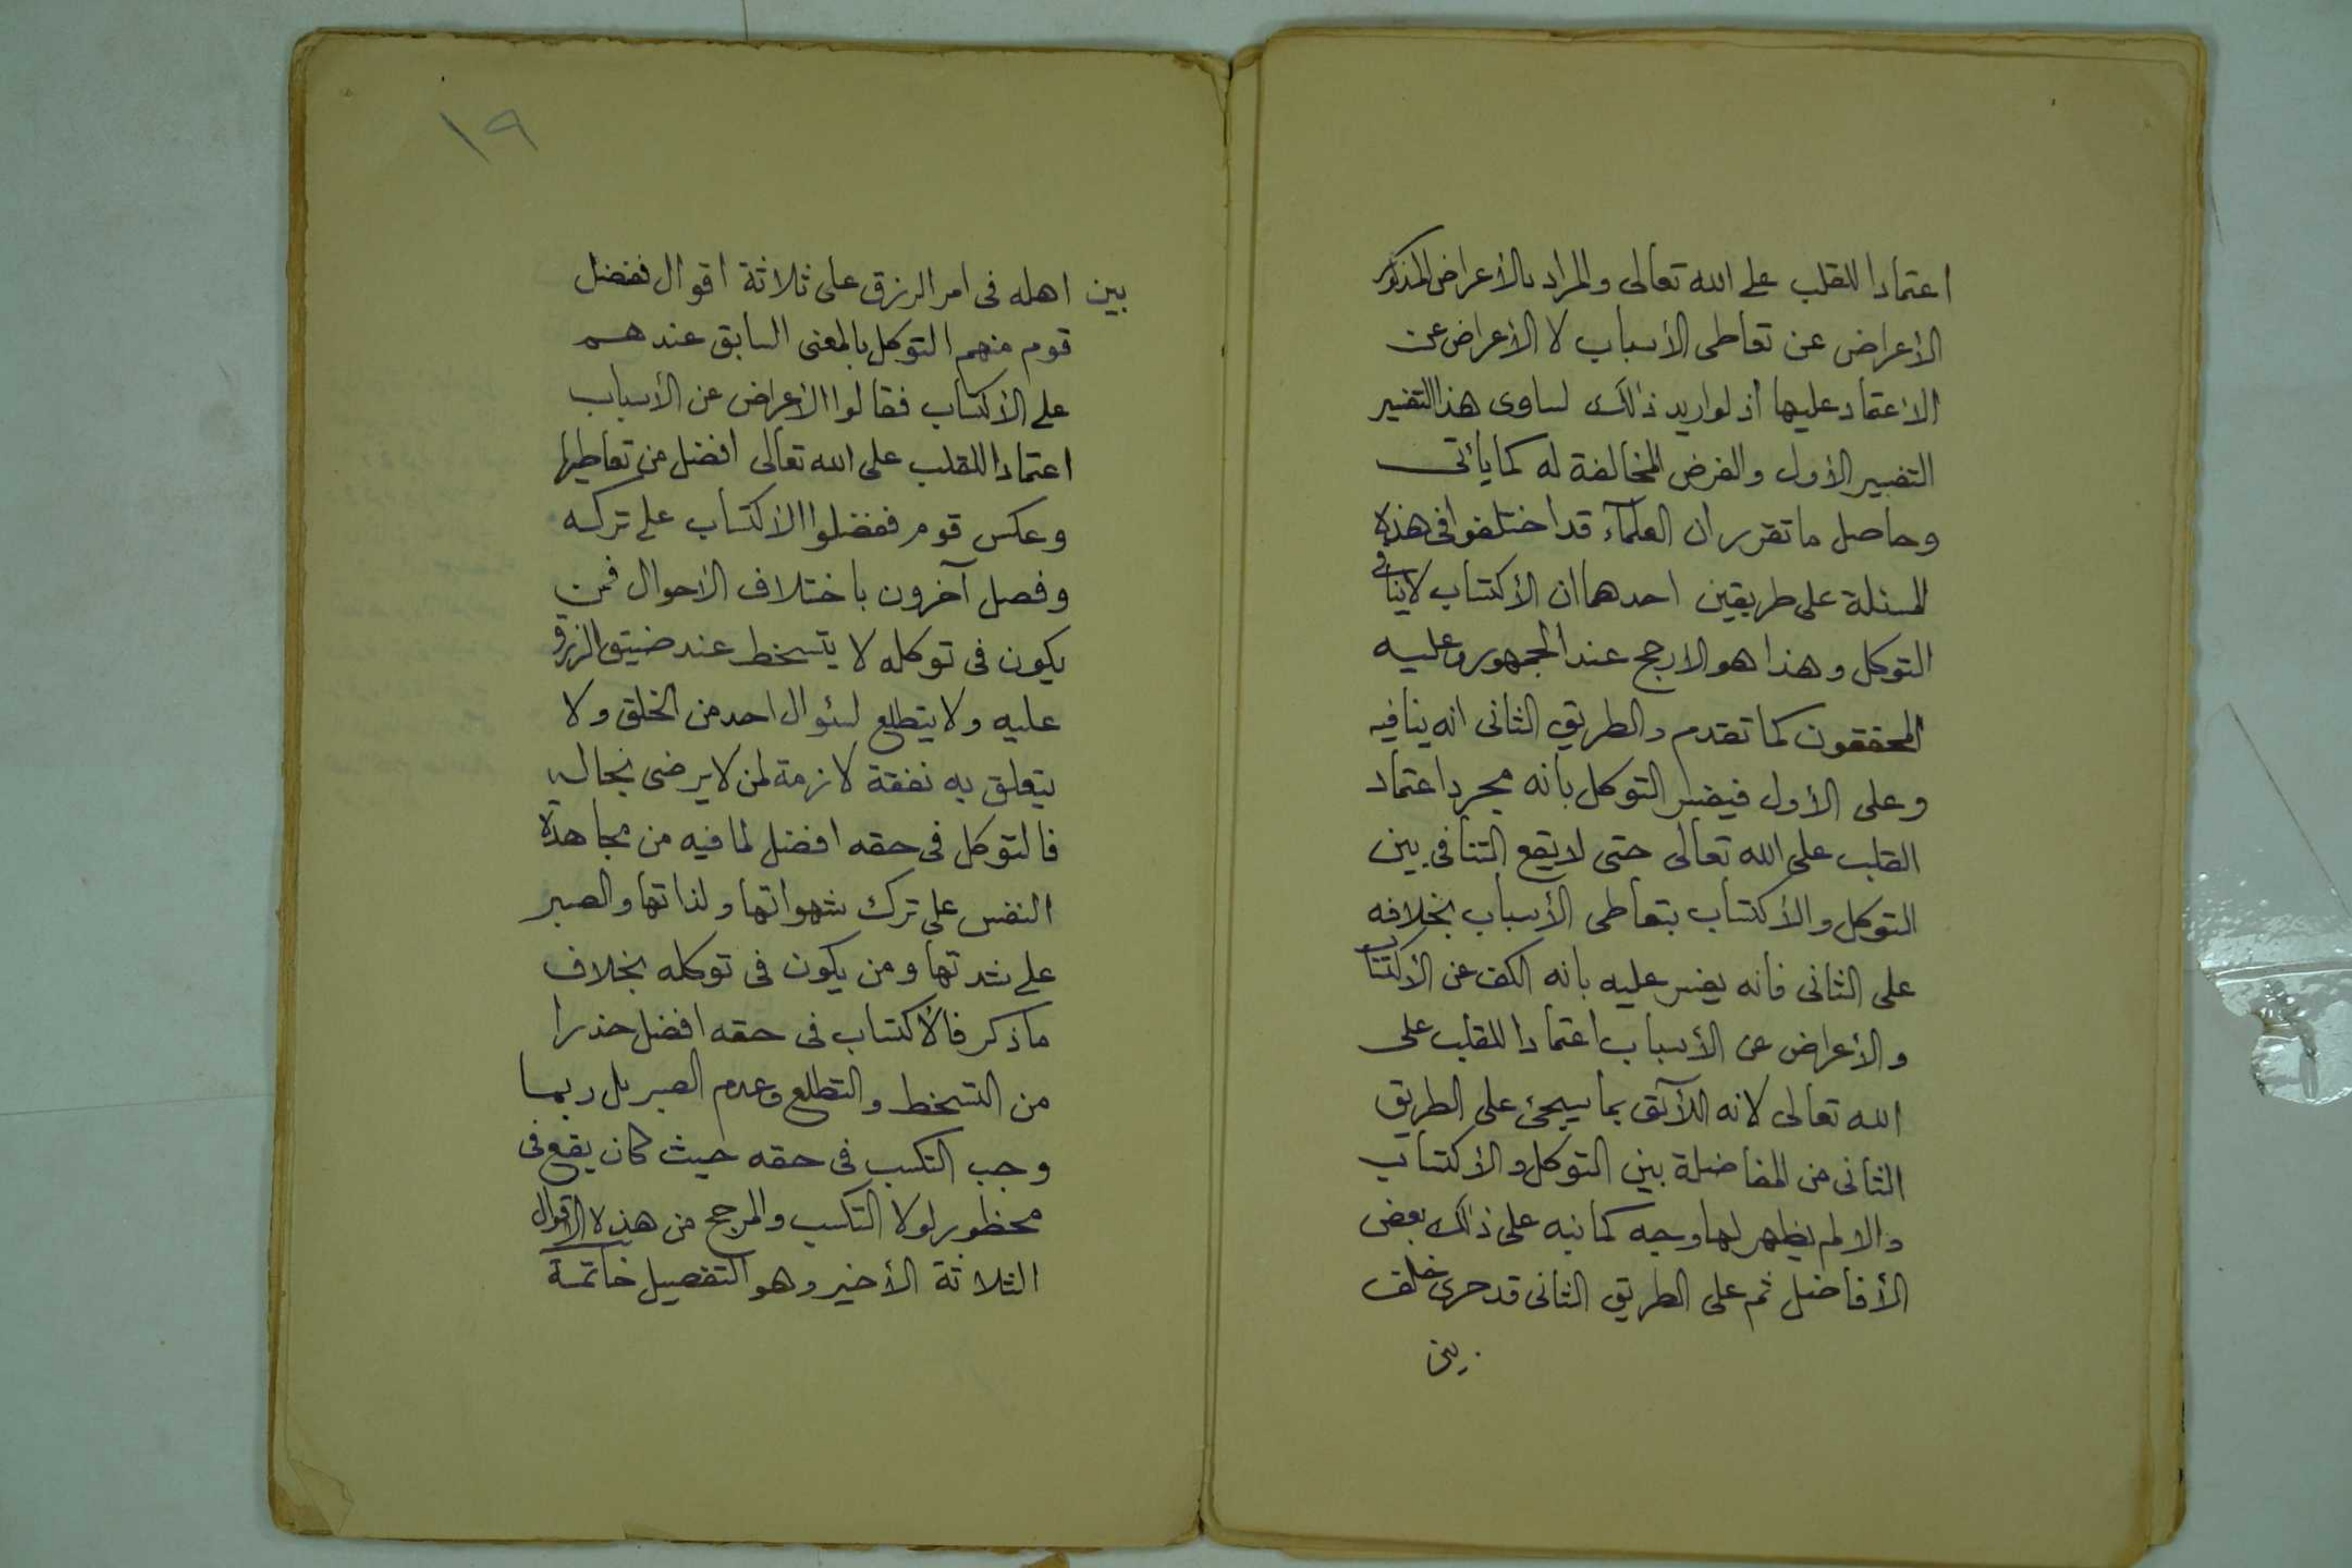 اعتمادا للقلب على الله تعالى والمراد بالأعراض المذكور
الاعراض عن تعاطى الأسباب لا الأعراض عن
الاعتماد عليها اذ لو اريد ذلك لساوى هذا التفسير
التفسير الأول والغرض المخالفة له كما يأتى
وحاصل ما تقرر ان العلمآء قد اختلفوا فى هذه
المسئلة على طريقين احدهما ان الأكتساب لا ينافى
التوكل وهذا هو الارجح عند الجمهور وعليه
المحققون كما تقدم والطريق الثانى انه ينافيه
وعلى الأول فيفسر التوكل بانه مجرد اعتماد
القلب على الله تعالى حتى لا يقع التنافى بين
التوكل والأكتساب بتعاطى الأسباب بخلافه
على الثانى فانه يفسر عليه بانه الكف عن الأكتساب
والأعراض عن الأسباب اعتمادا للقلب على
الله تعالى لانه اللآئق بما سيجئ على الطريق
الثانى من المفاضلة بين التوكل والأكتساب
والا لم يظهر لها وجه كما نبه على ذلك بعض
الأفاضل ثم على الطريق الثانى قد جرى خلف
بين
١٩
بين اهله فى امر الرزق على ثلاثة اقوال ففضل
قوم منهم التوكل بالمعنى السابق عندهم
على الأكتساب فقالوا الأعراض عن الأسباب
اعتمادا للقلب على الله تعالى افضل من تعاطيها
وعكس قوم ففضلوا الاكتساب على تركه
وفصل آخرون باختلاف الاحوال فمن
يكون فى توكله لا يتسخط عند ضيق الرزق
عليه ولا يتطلع لسئوال احد من الخلق ولا
يتعلق به نفقة لازمة لمن لا يرضى بحاله
فالتوكل فى حقه افضل لما فيه من مجاهدة
النفس على ترك شهواتها ولذاتها والصبر
على شدتها ومن يكون فى توكله بخلاف
ما ذكر فالأكتساب فى حقه افضل حذرا
من التسخط والتطلع وعدم الصبر بل ربما
وجب التكسب فى حقه حيث كان يقع فى
محظور لولا التكسب والمرجح من هذه الاقوال
الثلاثة الأخير وهو التفصيل خاتمة